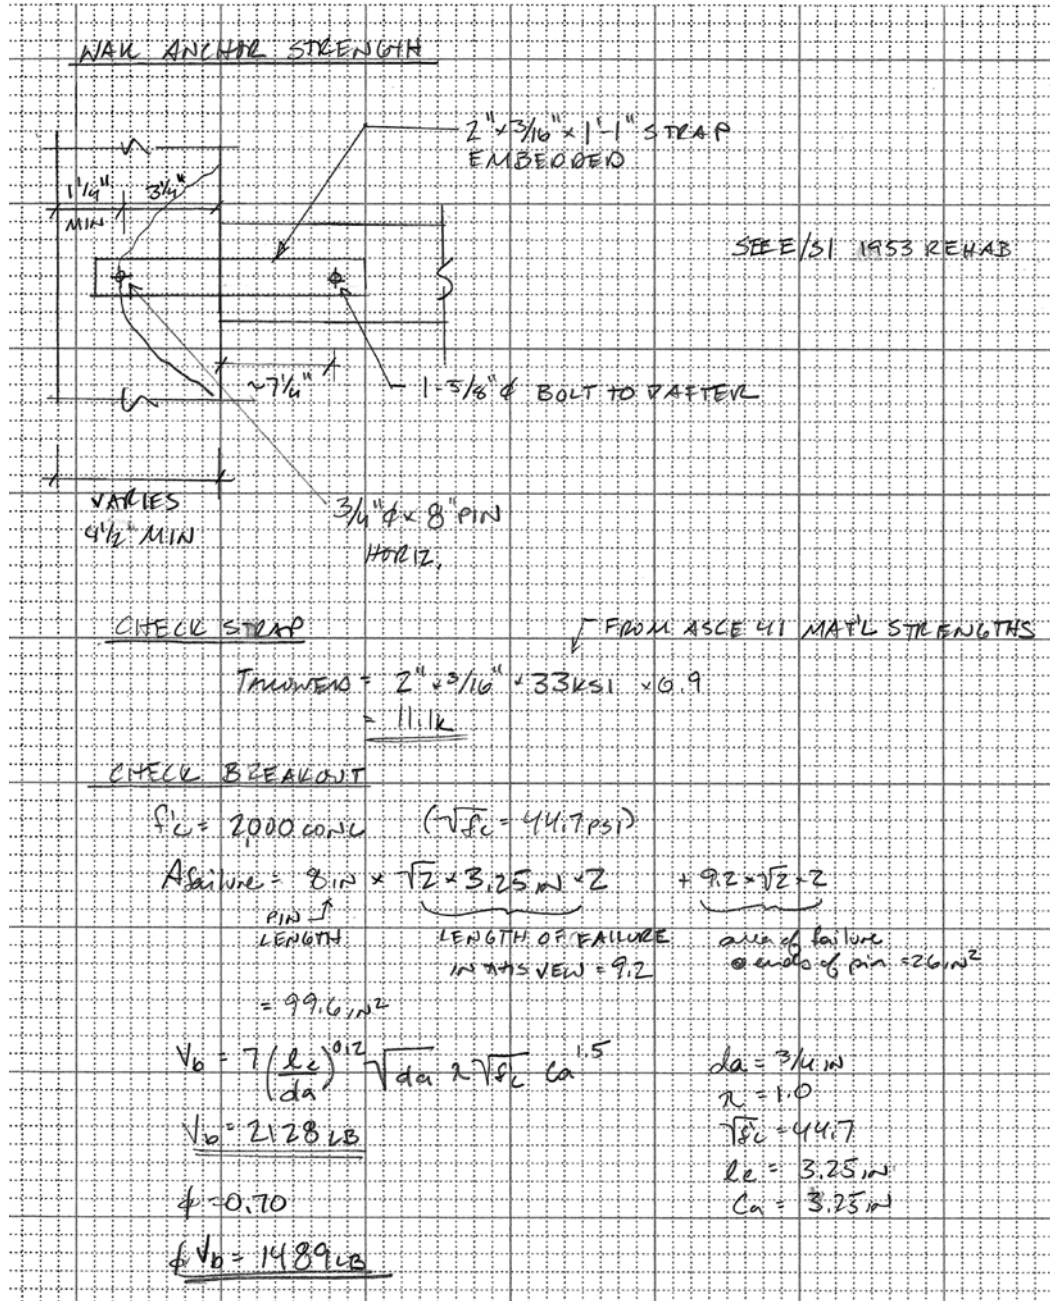 WALL ANCHOR STRENGTH
2"x3/16"x 1'-1" STRAP
EMBEDDED
1 1/4"
MIN
3 1/4"
SEE E/S1 1953 REHAB
~7 1/4"
1-5/8"φ BOLT TO RAFTER
VARIES
4 1/2" MIN
3/4"φ x 8" PIN
HORIZ.
CHECK STRAP
FROM ASCE 41 MAT'L STRENGTHS
TALLOWED = 2" x 3/16" x 33KSI x 0.9
= 11.1k
CHECK BREAKOUT
f'c = 2,000 CONC (√f'c = 44.7 PSI)
Afailure = 8 IN x √2 x 3.25 IN x 2 + 9.2 x √2 x 2
PIN
LENGTH
LENGTH OF FAILURE
IN THIS VIEW = 9.2
area of failure
@ ends of pin = 26 IN²
= 99.6 IN²
Vb = 7 (le/da)^0.2 √da λ √f'c Ca^1.5
da = 3/4 IN
λ = 1.0
Vb = 2128 LB
√f'c = 44.7
le = 3.25 IN
φ = 0.70
Ca = 3.25 IN
φVb = 1489 LB